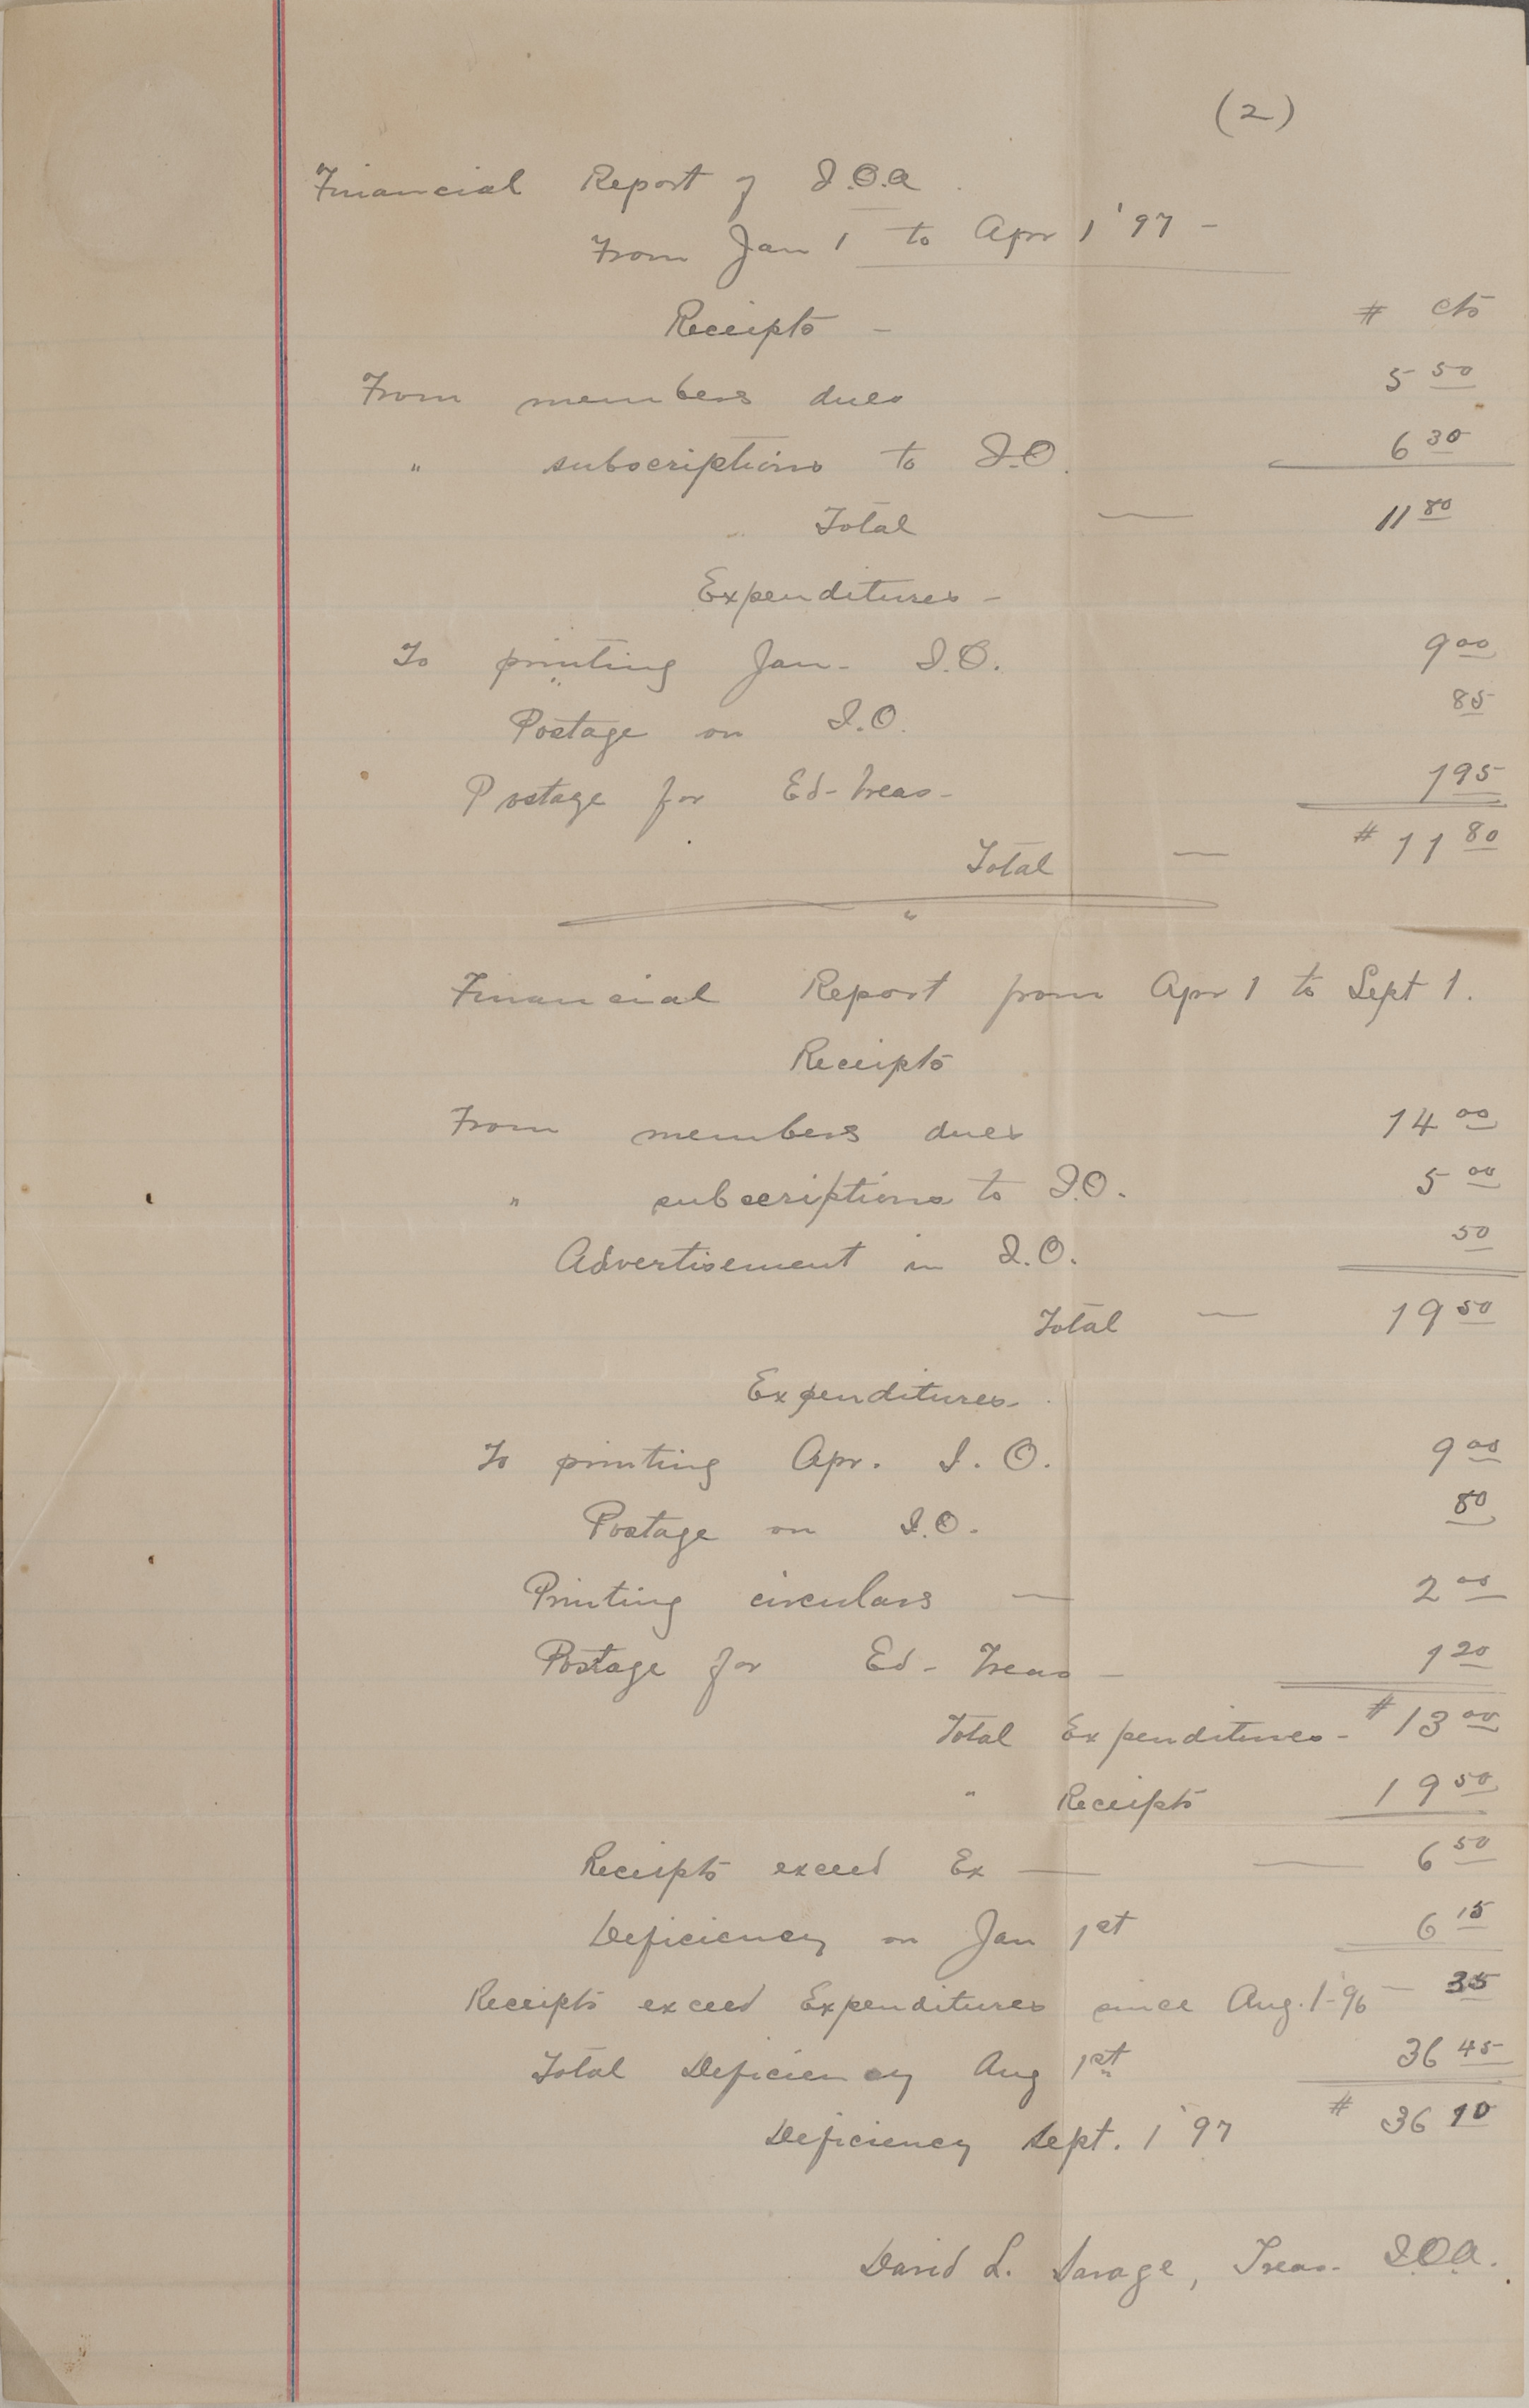 (2)
Financial Report of I.O.A.
From Jan 1 to Apr 1 '97 -
Receipts - # cts
From members dues 5 50
" subscriptions to I.O. 6 30
Total — 11 80
Expenditures -
To printing Jan - I.O. 9 00
Postage on I.O. 85
Postage for Ed-treas- 1 95
Total — # 11 80
"
Financial Report from Apr 1 to Sept 1.
Receipts
From members dues 14 00
" subscriptions to I.O. 5 00
Advertisement in I.O. 50
Total — 19 50
Expenditures-
To printing Apr. I.O. 9 00
Postage on I.O. 80
Printing circulars — 2 00
Postage for Ed-Treas - 1 20
Total Expenditures - # 13 00
" Receipts 19 50
Receipts exceed Ex — — 6 50
Deficiency on Jan 1st 6 15
Receipts exceed Expenditures since Aug. 1-96 — 35
Total Deficiency Aug 1st 36 45
Deficiency Sept. 1 '97 # 36 10
David L. Savage, Treas. I.O.A.